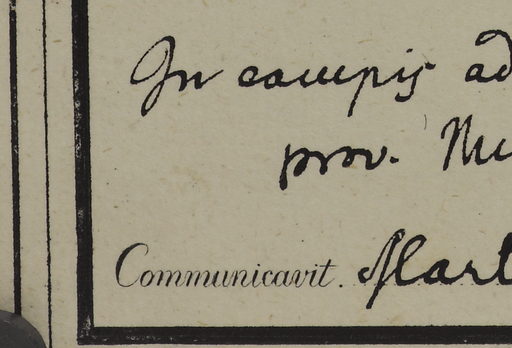 In campis ad
prov. Mu
Communicavit. Mart